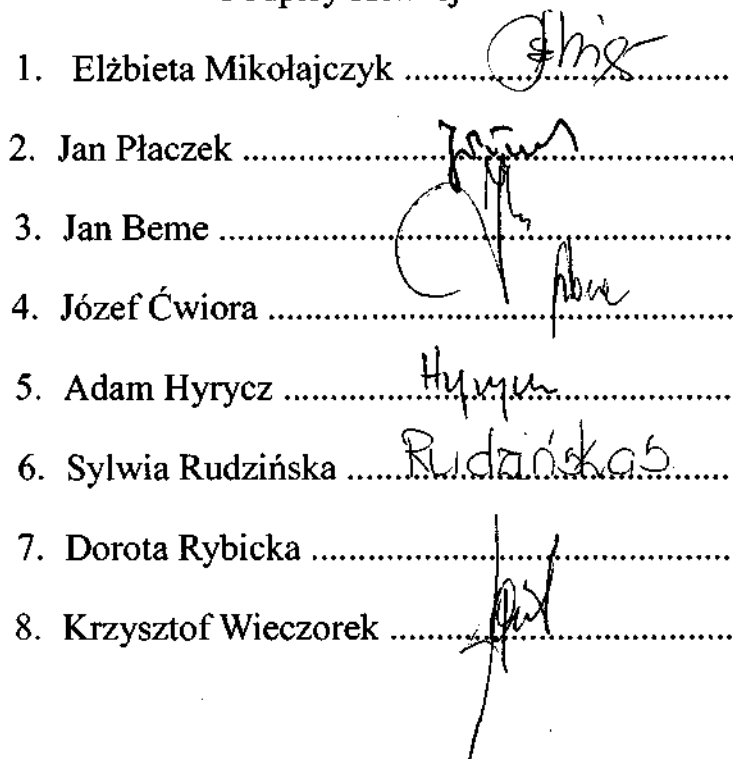 1. Elżbieta Mikołajczyk ....................................
2. Jan Płaczek ....................................................
3. Jan Beme .......................................................
4. Józef Ćwiora .................................................
5. Adam Hyrycz ................................................ Hyrycz
6. Sylwia Rudzińska .......................................... Rudzińska S
7. Dorota Rybicka .............................................
8. Krzysztof Wieczorek .....................................